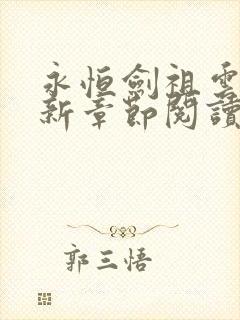 永恒劍祖雲
新章節閱讀
郭三悟